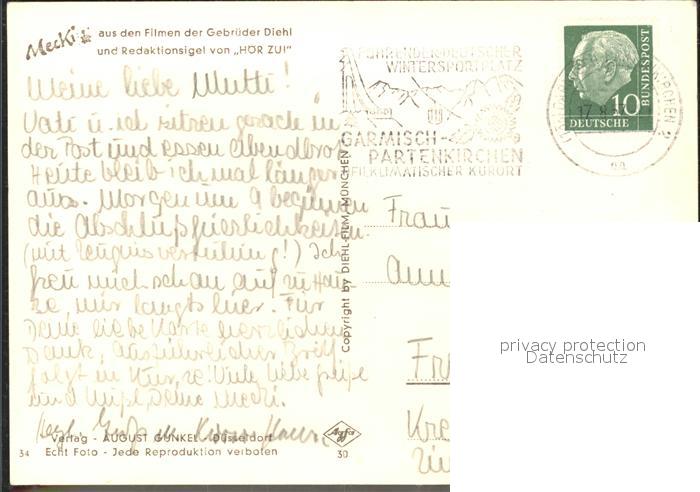 Mecki aus den Filmen der Gebrüder Diehl
und Redaktionsigel von „HÖR ZU!"
Meine liebe Mutti!
Vati u. ich sitzen gerade in
der Post und essen Abendbrot.
Heute bleib ich mal länger
aus. Morgen um 9 beginnen
die Abschlußfeierlichkeiten
(mit Zeugnisverteilung!) Ich
freu mich schon auf zu Hau-
se, mir langts hier. Für
Deine liebe Karte herzlichen
Dank, ausführlicher Brief
folgt in Kürze. Viele liebe Grüße
und Deine
Herzl. Grüße
Verlag - AUGUST GUNKEL - Düsseldorf
34 Echt Foto - Jede Reproduktion verboten 30.
Agfa
Copyright by DIEHL-FILM, MÜNCHEN
FÜHRENDER DEUTSCHER
WINTERSPORTPLATZ
GARMISCH-
PARTENKIRCHEN
HEILKLIMATISCHER KURORT
10
DEUTSCHE
BUNDESPOST
Frau
Fr
Kre
privacy protection
Datenschutz